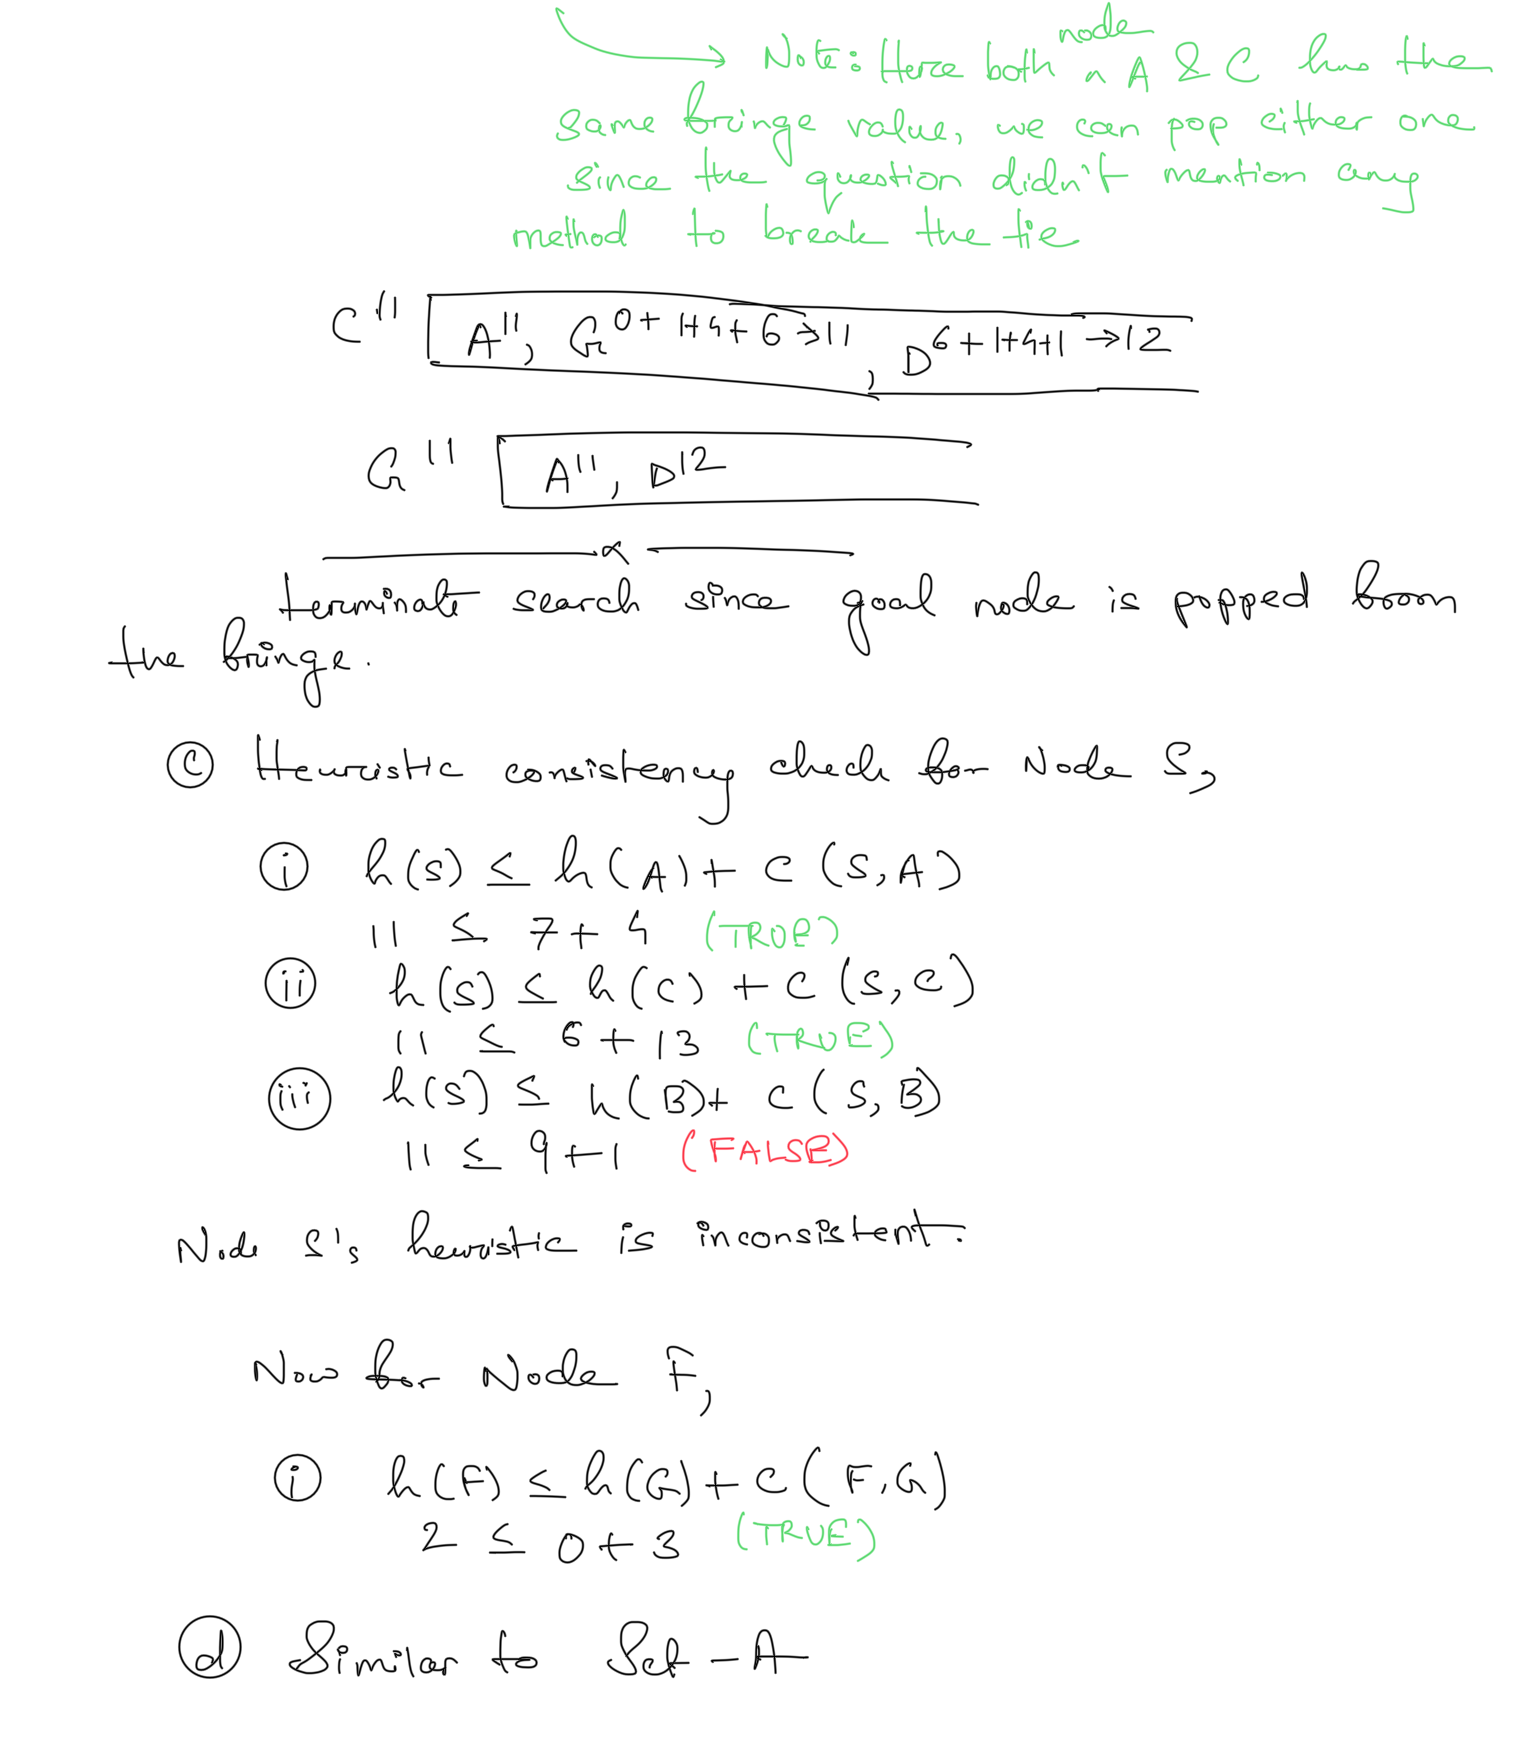 node
Note: Here both ^ A & C has the
same fringe value, we can pop either one
since the question didn't mention any
method to break the tie
C¹¹ A¹¹, G⁰⁺¹⁺⁴⁺⁶→¹¹, D⁶⁺¹⁺⁴⁺¹→¹²
G¹¹ A¹¹, D¹²
terminate search since goal node is popped from
the fringe.
(c) Heuristic consistency check for Node S,
(i) h(S) ≤ h(A) + c (S, A)
11 ≤ 7 + 4 (TRUE)
(ii) h(S) ≤ h(C) + c (S, C)
11 ≤ 6 + 13 (TRUE)
(iii) h(S) ≤ h(B) + c (S, B)
11 ≤ 9 + 1 (FALSE)
Node S's heuristic is inconsistent.
Now for Node F,
(i) h(F) ≤ h(G) + c (F, G)
2 ≤ 0 + 3 (TRUE)
(d) Similar to Set - A